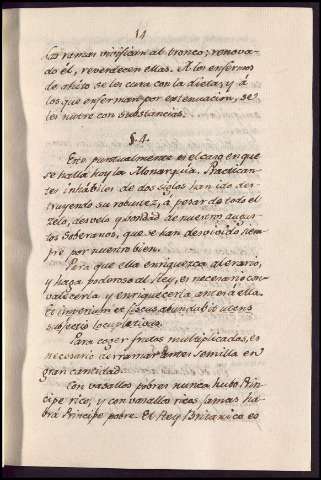 14
las ramas vivifican al tronco; renova-
do él, reverdecen ellas. A los enfermos
de ahito se les cura con la dieta; y á
los que enferman por extenuacion, se
les nutre con substancias.
§. 4.
Este puntualmente es el caso en que
se halla hoy la Monarquía. Practican-
tes inhábiles de dos siglos han ido des-
truyendo su robustez, á pesar de todo el
zelo, desvelo y bondad de nuestros augus-
tos Soberanos, que se han desvivido siem-
pre por nuestro bien.
Para que ella enriquezca al erario,
y haga poderoso al Rey, es necesario con-
valecerla y enriquecerla antes á ella.
Et imperium et fiscus abundabit utens
subjectis locupletibus.
Para coger frutos multiplicados, es
necesario derramar antes semilla en
gran cantidad.
Con vasallos pobres nunca hubo Prin-
cipe rico; y con vasallos ricos jamas ha-
brá Principe pobre. El Rey Britanico es